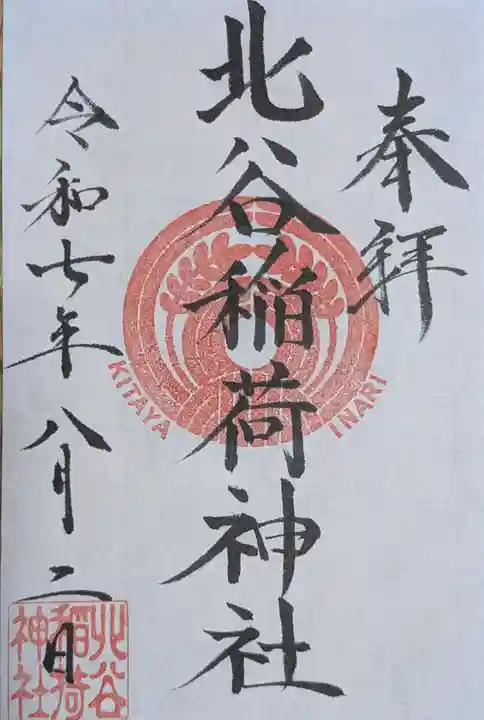 奉拝
北谷稲荷神社
KITAYA INARI
令和七年八月二日
北谷
稲荷
神社